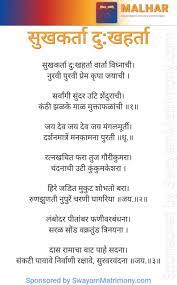 MALHAR
सुखकर्ता दु:खहर्ता
सुखकर्ता दु:खहर्ता वार्ता विघ्नाची।
नुरवी पुरवी प्रेम कृपा जयाची।
सर्वांगी सुंदर उटि शेंदुराची।
कंठी झळके माळ मुक्ताफळांची ॥१॥
जय देव जय देव जय मंगलमूर्ती।
दर्शनमात्रें मनकामना पुरती ॥धृ.॥
रत्नखचित फरा तुज गौरीकुमरा।
चंदनाची उटी कुंकुमकेशरा।
हिरे जडित मुकुट शोभतो बरा।
रुणझुणती नुपुरें चरणी घागरिया ॥जय.॥२॥
लंबोदर पीतांबर फणीवरबंधना।
सरळ सोंड वक्रतुंड त्रिनयना।
दास रामाचा वाट पाहे सदना।
संकटी पावावे निर्वाणी रक्षावे, सुरवरवंदना ॥जय.॥३॥
Sponsored by SwayamMatrimony.com